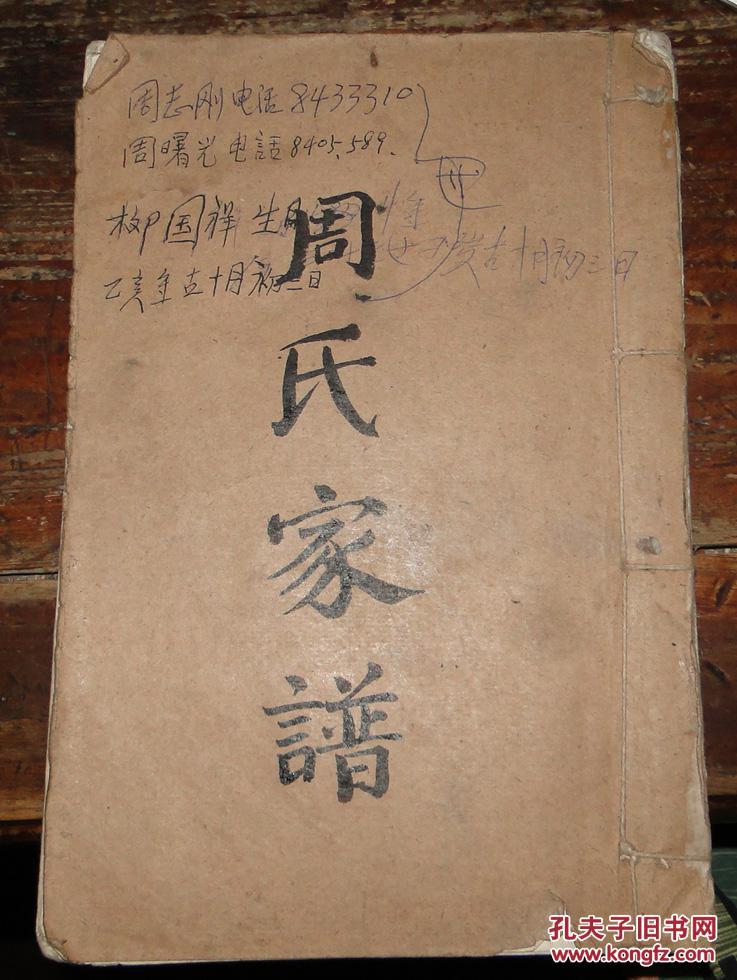 周志刚电话8433310
周曙光电話8405.589.
柳国祥生
乙亥年古十月初三日
古十月初三日
周氏家譜
孔夫子旧书网
www.kongfz.com